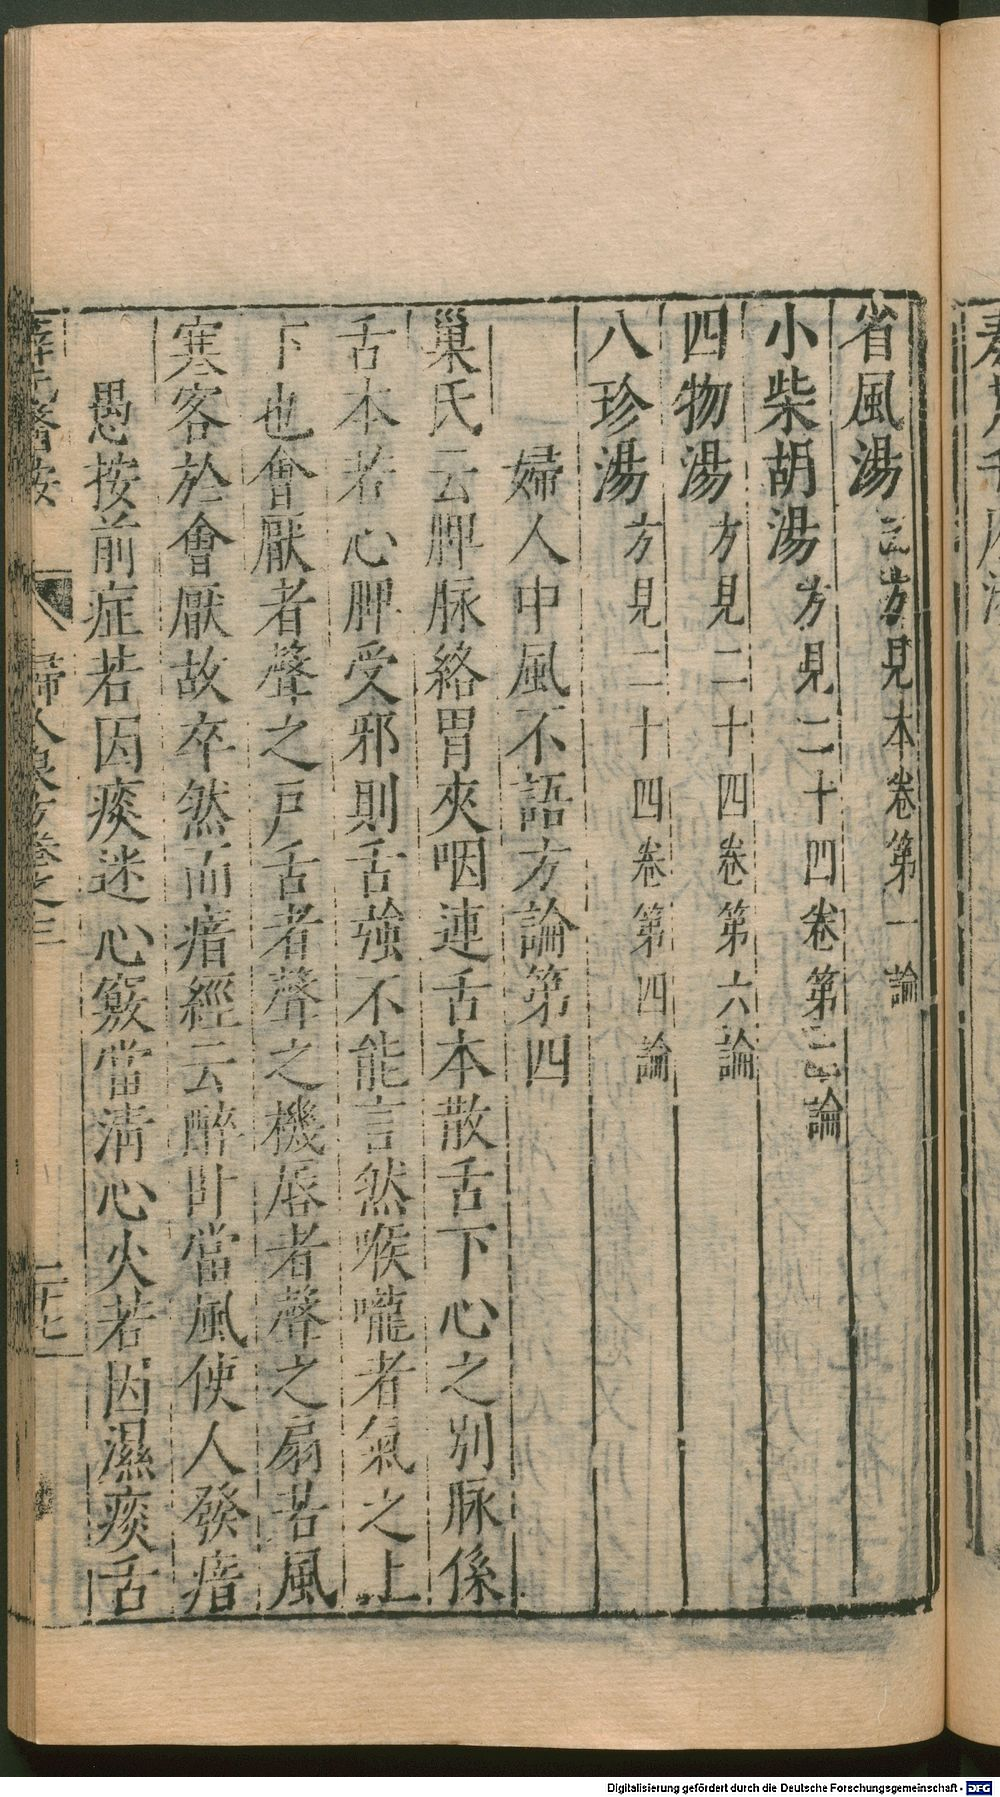 省風湯方見本卷第一論
小柴胡湯方見二十四卷第二論
四物湯方見二十四卷第六論
八珍湯方見二十四卷第四論
婦人中風不語方論第四
巢氏云脾脉絡胃夾咽連舌本散舌下心之別脉係
舌本若心脾受邪則舌強不能言然喉嚨者氣之上
下也會厭者聲之戸舌者聲之機唇者聲之扇若風
寒客於會厭故卒然而瘖經云醉卧當風使人發瘖
愚按前症若因痰迷心竅當清心火若因濕痰舌
薛氏醫按 婦人良方卷之三 二十七
Digitalisierung gefördert durch die Deutsche Forschungsgemeinschaft - DFG